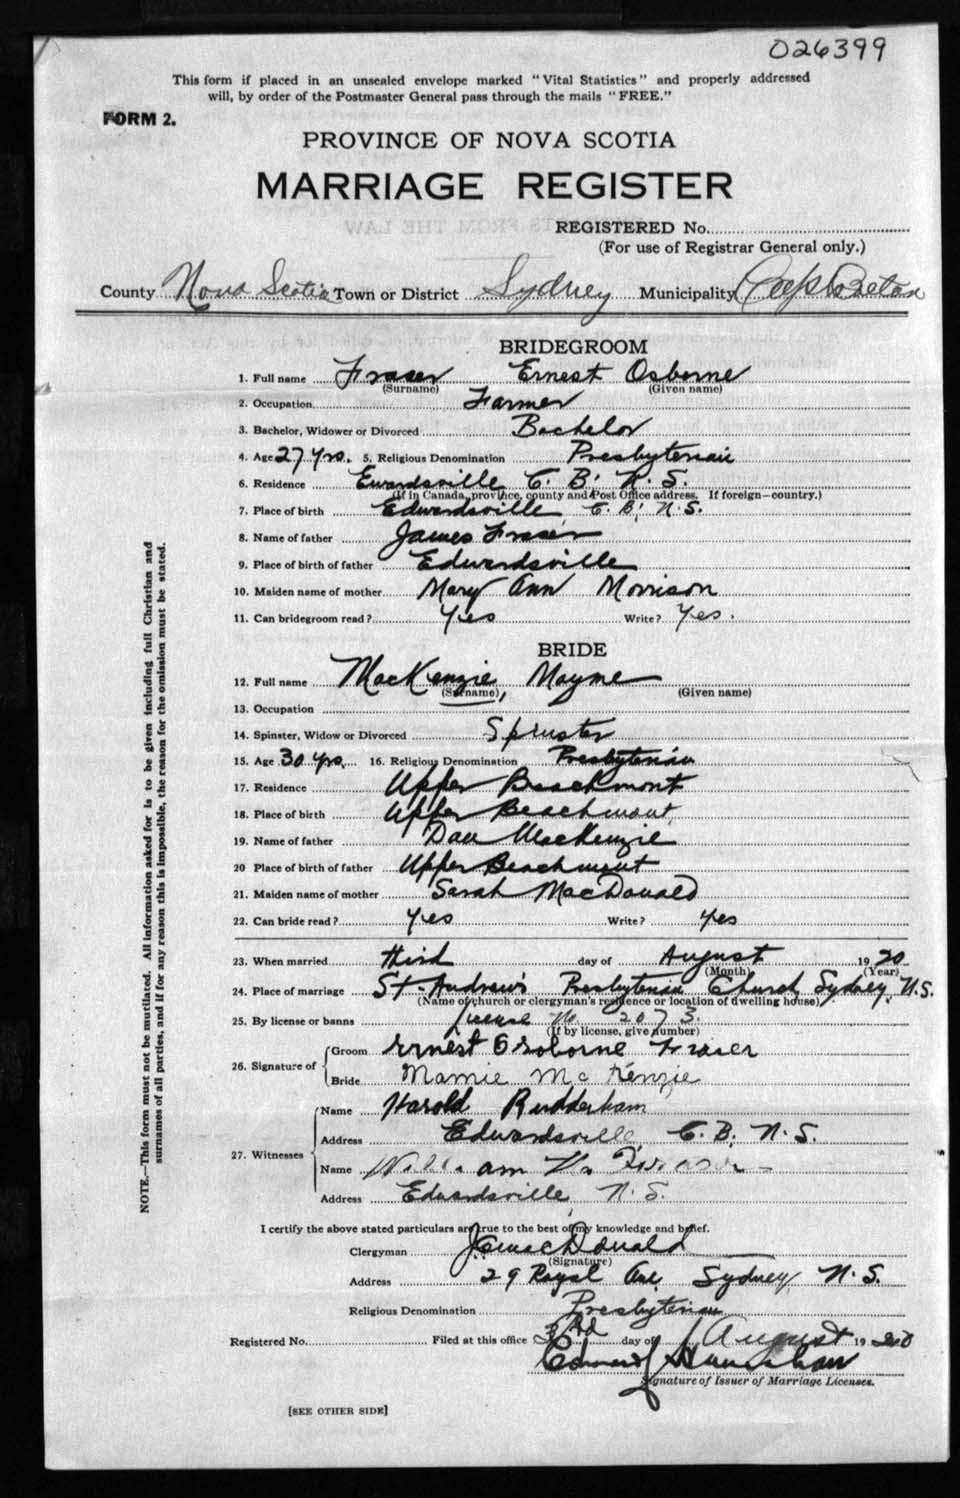 026399
This form if placed in an unsealed envelope marked "Vital Statistics" and properly addressed
will, by order of the Postmaster General pass through the mails "FREE."
FORM 2.
PROVINCE OF NOVA SCOTIA
MARRIAGE REGISTER
REGISTERED No.
(For use of Registrar General only.)
County Nova Scotia Town or District Sydney Municipality Cape Breton
BRIDEGROOM
1. Full name Fraser Ernest Osborne
(Surname) (Given name)
2. Occupation Farmer
3. Bachelor, Widower or Divorced Bachelor
4. Age 27 yrs. 5. Religious Denomination Presbyterian
6. Residence Ewardsville C. B. N. S.
(If in Canada, province, county and Post Office address. If foreign—country.)
7. Place of birth Edwardsville C. B. N. S.
8. Name of father James Fraser
9. Place of birth of father Edwardsville
10. Maiden name of mother Mary Ann Morrison
11. Can bridegroom read? Yes Write? Yes.
BRIDE
12. Full name MacKenzie, Mayme
(Surname) (Given name)
13. Occupation
14. Spinster, Widow or Divorced Spinster
15. Age 30 yrs. 16. Religious Denomination Presbyterian
17. Residence Upper Beachmont
18. Place of birth Upper Beachmont
19. Name of father Dan MacKenzie
20 Place of birth of father Upper Beachmont
21. Maiden name of mother Sarah MacDonald
22. Can bride read? Yes Write? Yes
23. When married third day of August 1920
(Month) (Year)
24. Place of marriage St. Andrew's Presbyterian Church, Sydney, N.S.
(Name of church or clergyman's residence or location of dwelling house)
25. By license or banns License No. 2073.
(If by license, give number)
26. Signature of
Groom Ernest Osborne Fraser
Bride Mamie McKenzie
27. Witnesses
Name Harold Rudderham
Address Edwardsville C. B. N. S.
Name William Fraser
Address Edwardsville N. S.
I certify the above stated particulars are true to the best of my knowledge and belief.
Clergyman MacDonald
(Signature)
Address 29 Royal Ave Sydney, N. S.
Religious Denomination Presbyterian
Registered No. Filed at this office 3rd day of August 1920
Edward
Signature of Issuer of Marriage Licenses.
[SEE OTHER SIDE]
NOTE.—This form must not be mutilated. All information asked for is to be given including full Christian and
surnames of all parties, and if for any reason this is impossible, the reason for the omission must be stated.